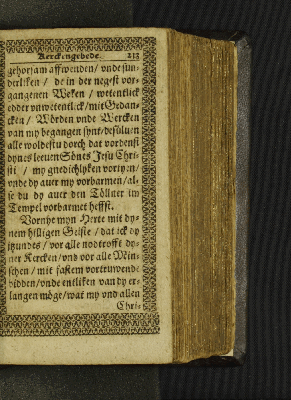 Kerckengebede. 213
gehorsam affwenden / vnde sun-
derliken / de in der negest vor-
gangenen Weken / wetentlick
edder vnwetentlick / mit Gedan-
cken / Wörden vnde Wercken
van my begangen synt / desüluen
alle woldestu dorch dat vordenst
dynes leeuen Söns Jesu Chri-
sti / my gnedichlyken vortyen /
vnde dy auer my vorbarmen / al-
se du dy auer den Töllner im
Tempel vorbarmet heffst.
Vornye myn Herte mit dy-
nem hilligen Geiste / dat ick dy
itzundes / vor alle nodtrofft dy-
ner Kercken / vnd vor alle Min-
schen / mit fastem vortruwende
bidden / vnde entliken van dy er-
langen möge / wat my vnd allen
Chri-